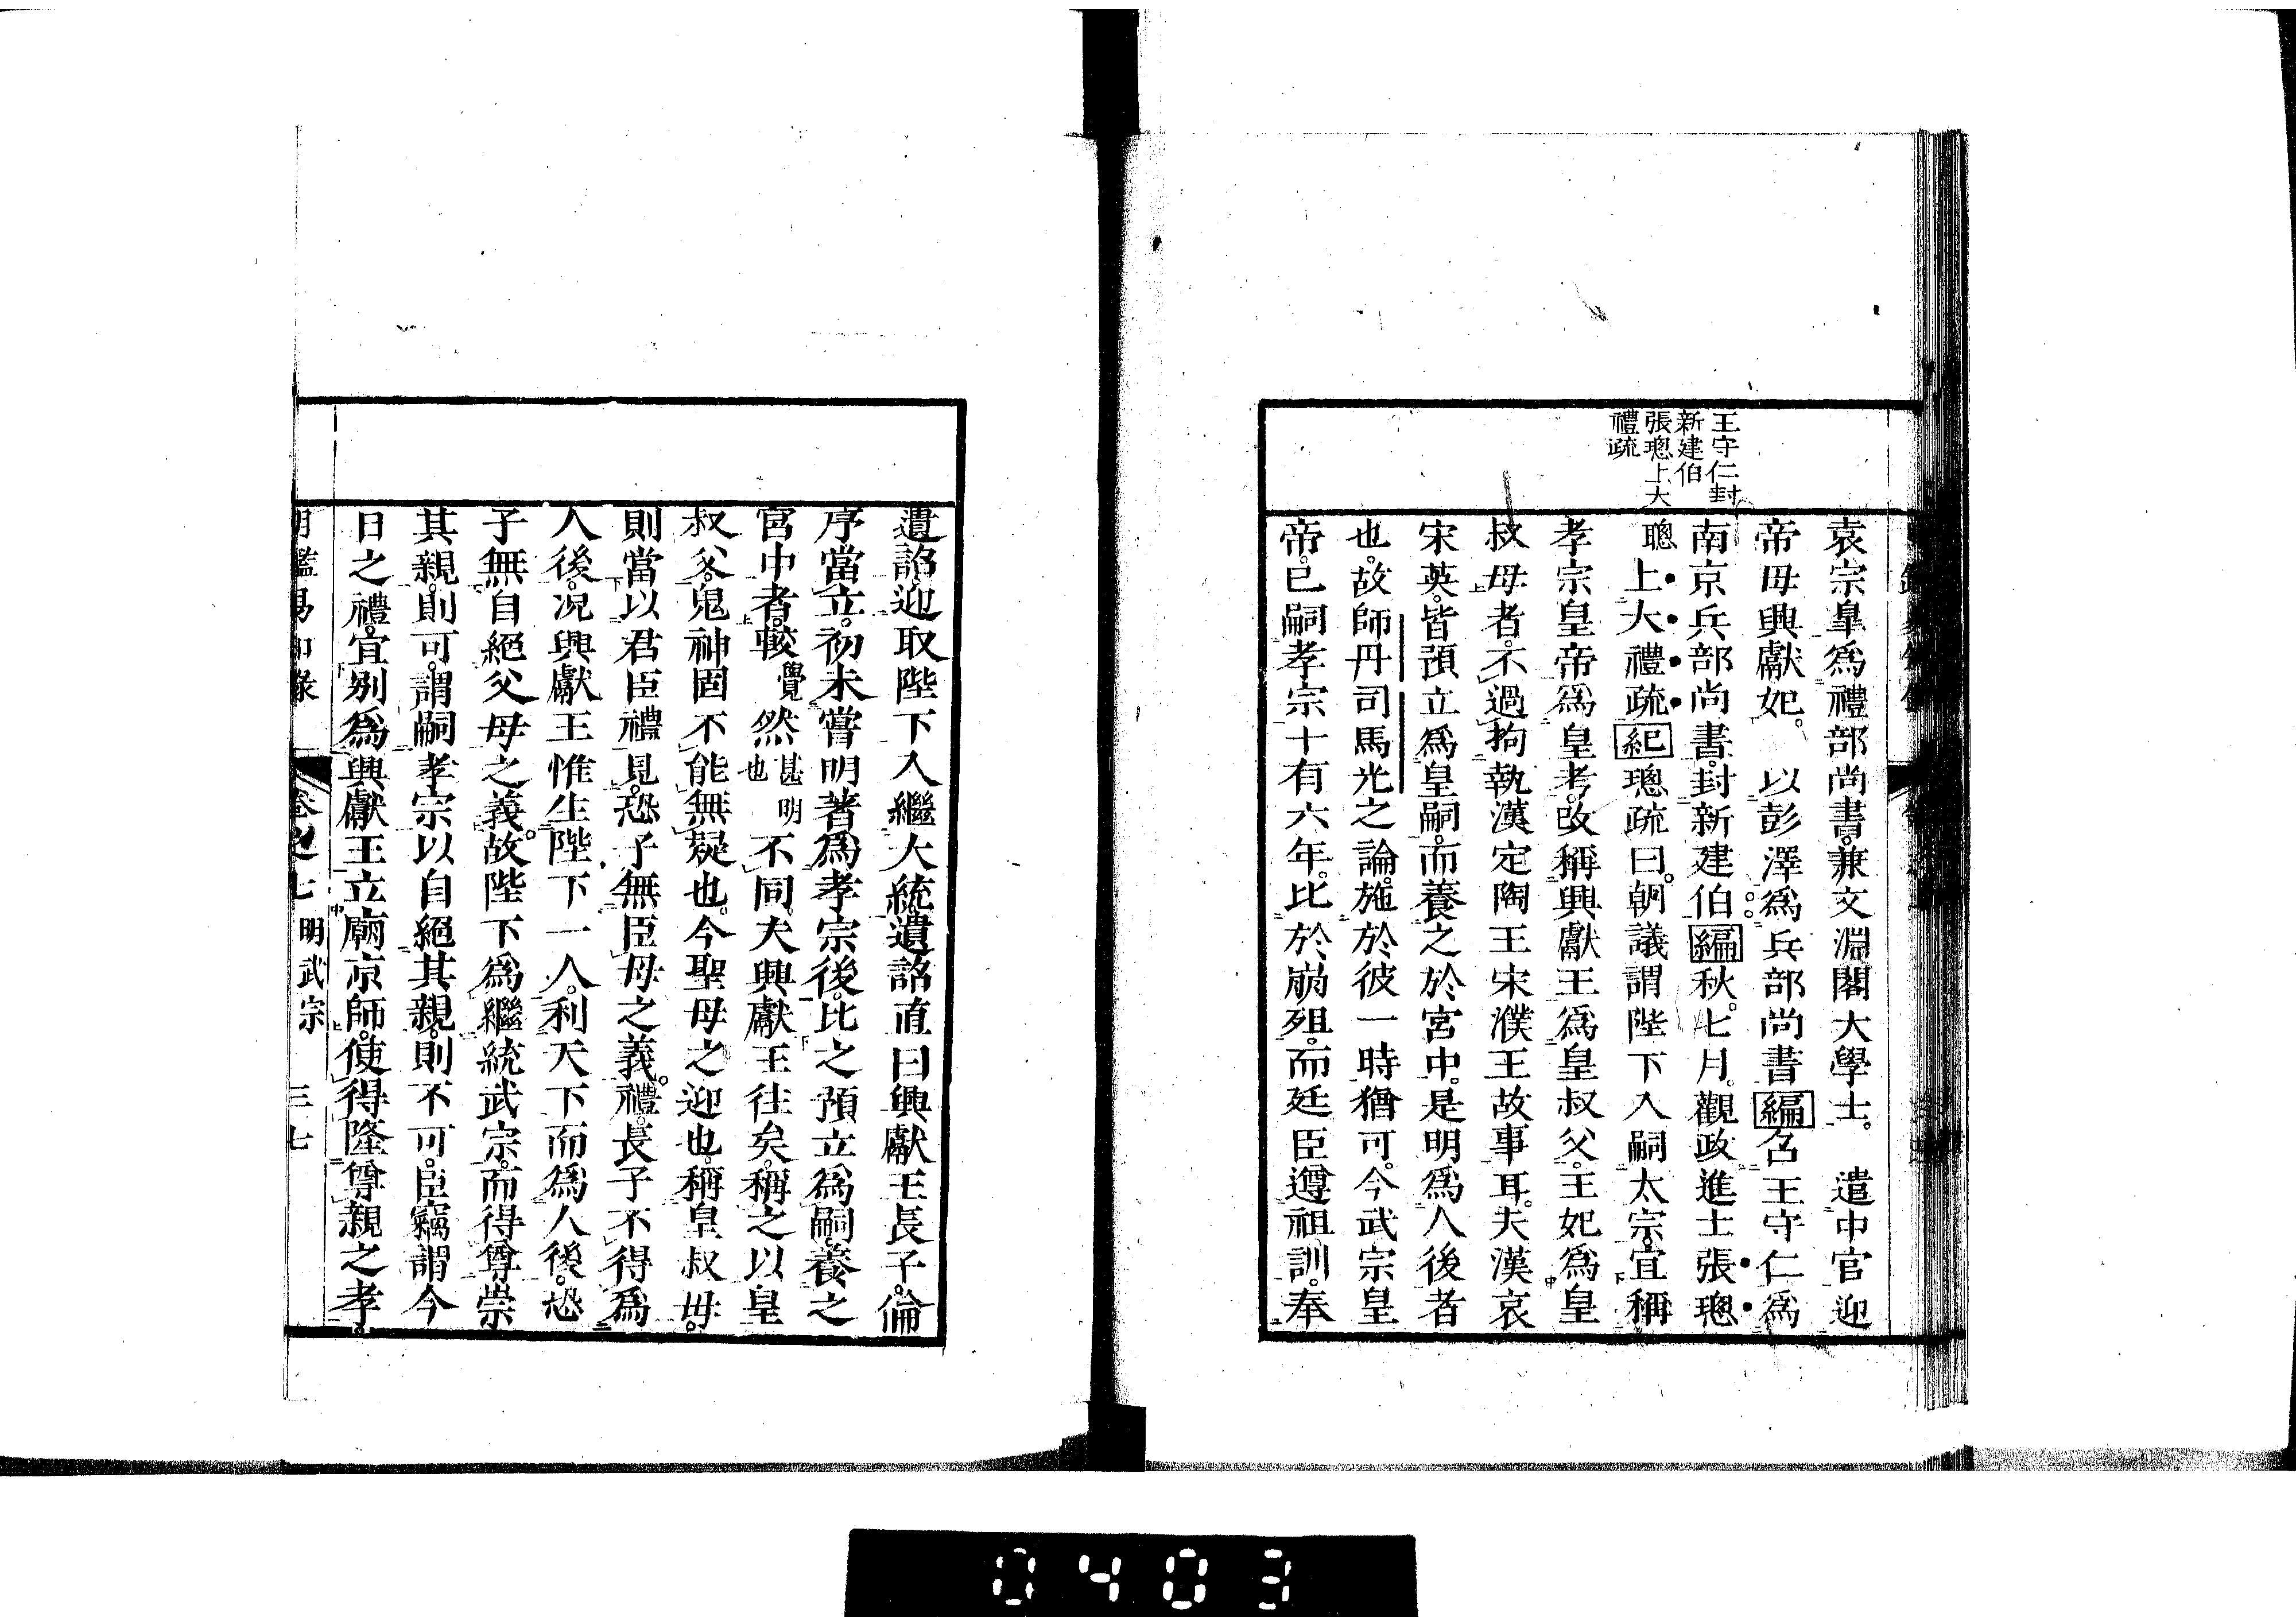 王守仁封
新建伯
張璁上大
禮疏
袁宗皐爲禮部尚書。兼文淵閣大學士。 遣中官迎
帝母興獻妃。 以彭澤爲兵部尚書編召王守仁爲
南京兵部尚書。封新建伯編秋。七月。觀政進士張璁
聰上大禮疏紀璁疏曰。朝議謂陛下入嗣太宗。宜稱
孝宗皇帝爲皇考。改稱興獻王爲皇叔父。王妃爲皇
叔母者。不過拘執漢定陶王宋濮王故事耳。夫漢哀
宋英。皆預立爲皇嗣。而養之於宮中。是明爲人後者
也。故師丹司馬光之論。施於彼一時猶可。今武宗皇
帝。已嗣孝宗十有六年。比於崩殂。而廷臣遵祖訓。奉
遺詔。迎取陛下入繼大統。遺詔直曰興獻王長子。倫
序當立。初未嘗明著爲孝宗後。比之預立爲嗣。養之
宮中者。較覺然甚明也不同。夫興獻王往矣。稱之以皇
叔父。鬼神固不能無疑也。今聖母之迎也。稱皇叔母。
則當以君臣禮見。恐子無臣母之義。禮。長子不得爲
人後。况興獻王惟生陛下一人。利天下而爲人後。恐
子無自絕父母之義。故陛下爲繼統武宗。而得尊崇
其親。則可。謂嗣孝宗以自絕其親。則不可。臣竊謂今
日之禮。宜別爲興獻王立廟京師。使得隆尊親之孝。
明鑑易知錄 卷之七 明武宗 三七
0403